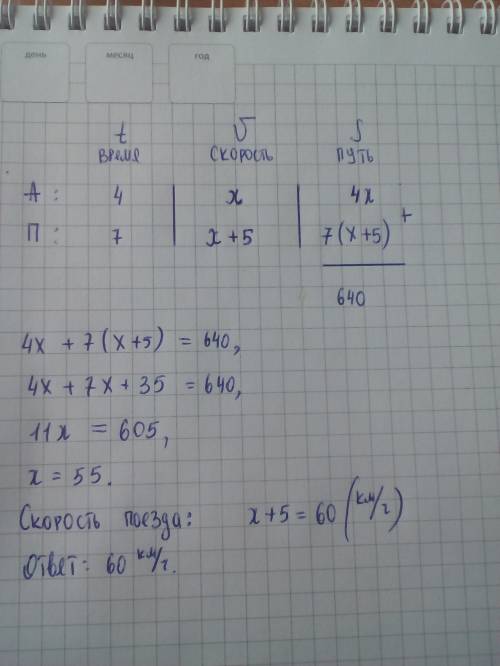 день месяц год
t V S
время скорость путь
А: 4 | x | 4x
П: 7 | x+5 | 7(x+5) +
640
4x + 7(x+5) = 640,
4x + 7x + 35 = 640,
11x = 605,
x = 55.
Скорость поезда: x+5 = 60 (км/г)
Ответ: 60 км/г.